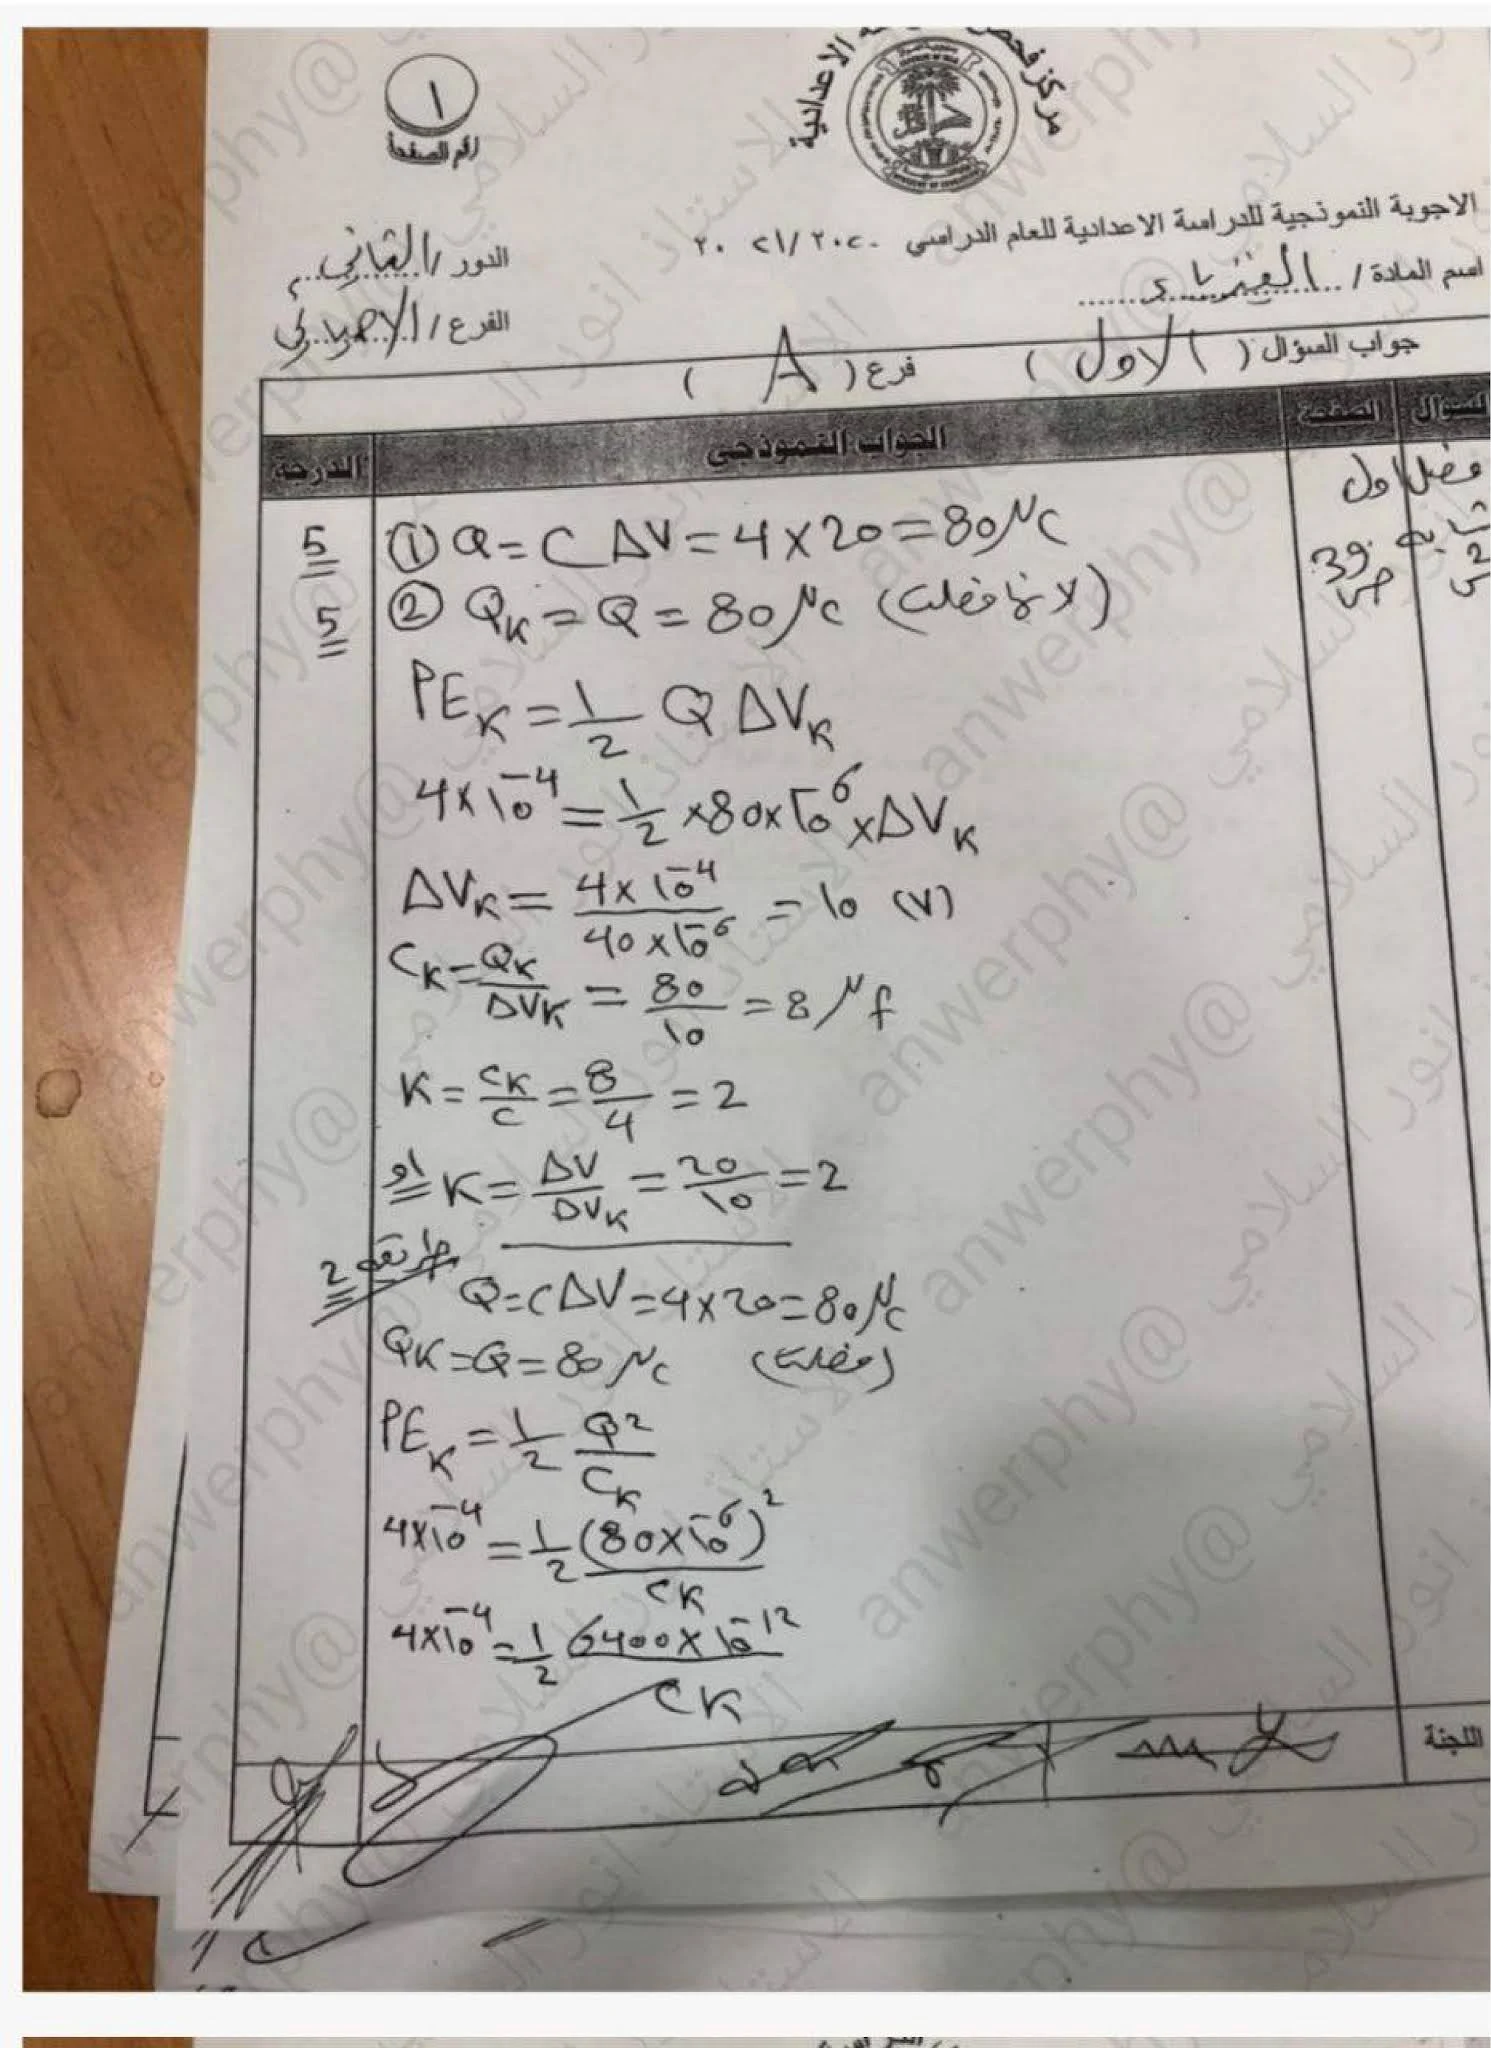 مركز فحص الاعدادية
١
رقم الصفحة
الاجوبة النموذجية للدراسة الاعدادية للعام الدراسي ٢٠٢٠/ ٢٠٢١
اسم المادة / الفيزياء
الدور / الثاني
الفرع / الاحيائي
جواب السؤال ( الاول ) فرع ( A )
السؤال الصفحة الجواب النموذجي الدرجة
فصل اول
تشابه 39
س2 ص
5 ① Q = C ΔV = 4 × 20 = 80 μC
5 ② Qκ = Q = 80 μC (لانها فصلت)
PEκ = 1/2 Q ΔVκ
4×10⁻⁴ = 1/2 × 80 × 10⁻⁶ × ΔVκ
ΔVκ = 4×10⁻⁴ / 40×10⁻⁶ = 10 (V)
Cκ = Qκ / ΔVκ = 80 / 10 = 8 μf
K = Cκ / C = 8 / 4 = 2
او K = ΔV / ΔVκ = 20 / 10 = 2
طريقة 2
Q = CΔV = 4 × 20 = 80 μC
Qκ = Q = 80 μC (فصلت)
PEκ = 1/2 Q² / Cκ
4×10⁻⁴ = 1/2 (80×10⁻⁶)² / Cκ
4×10⁻⁴ = 1/2 6400×10⁻¹² / Cκ
اللجنة
@anwerphy الاستاذ انور السلامي